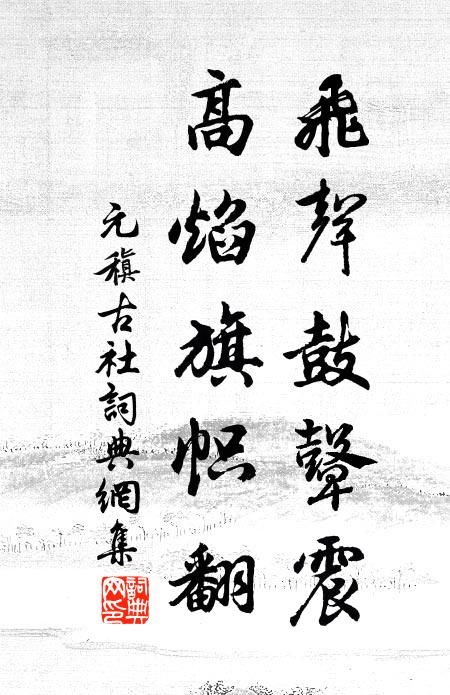 飛聲鼓鼙震
高焰旗帜翻
元稹古社詞典網集
詞典网印